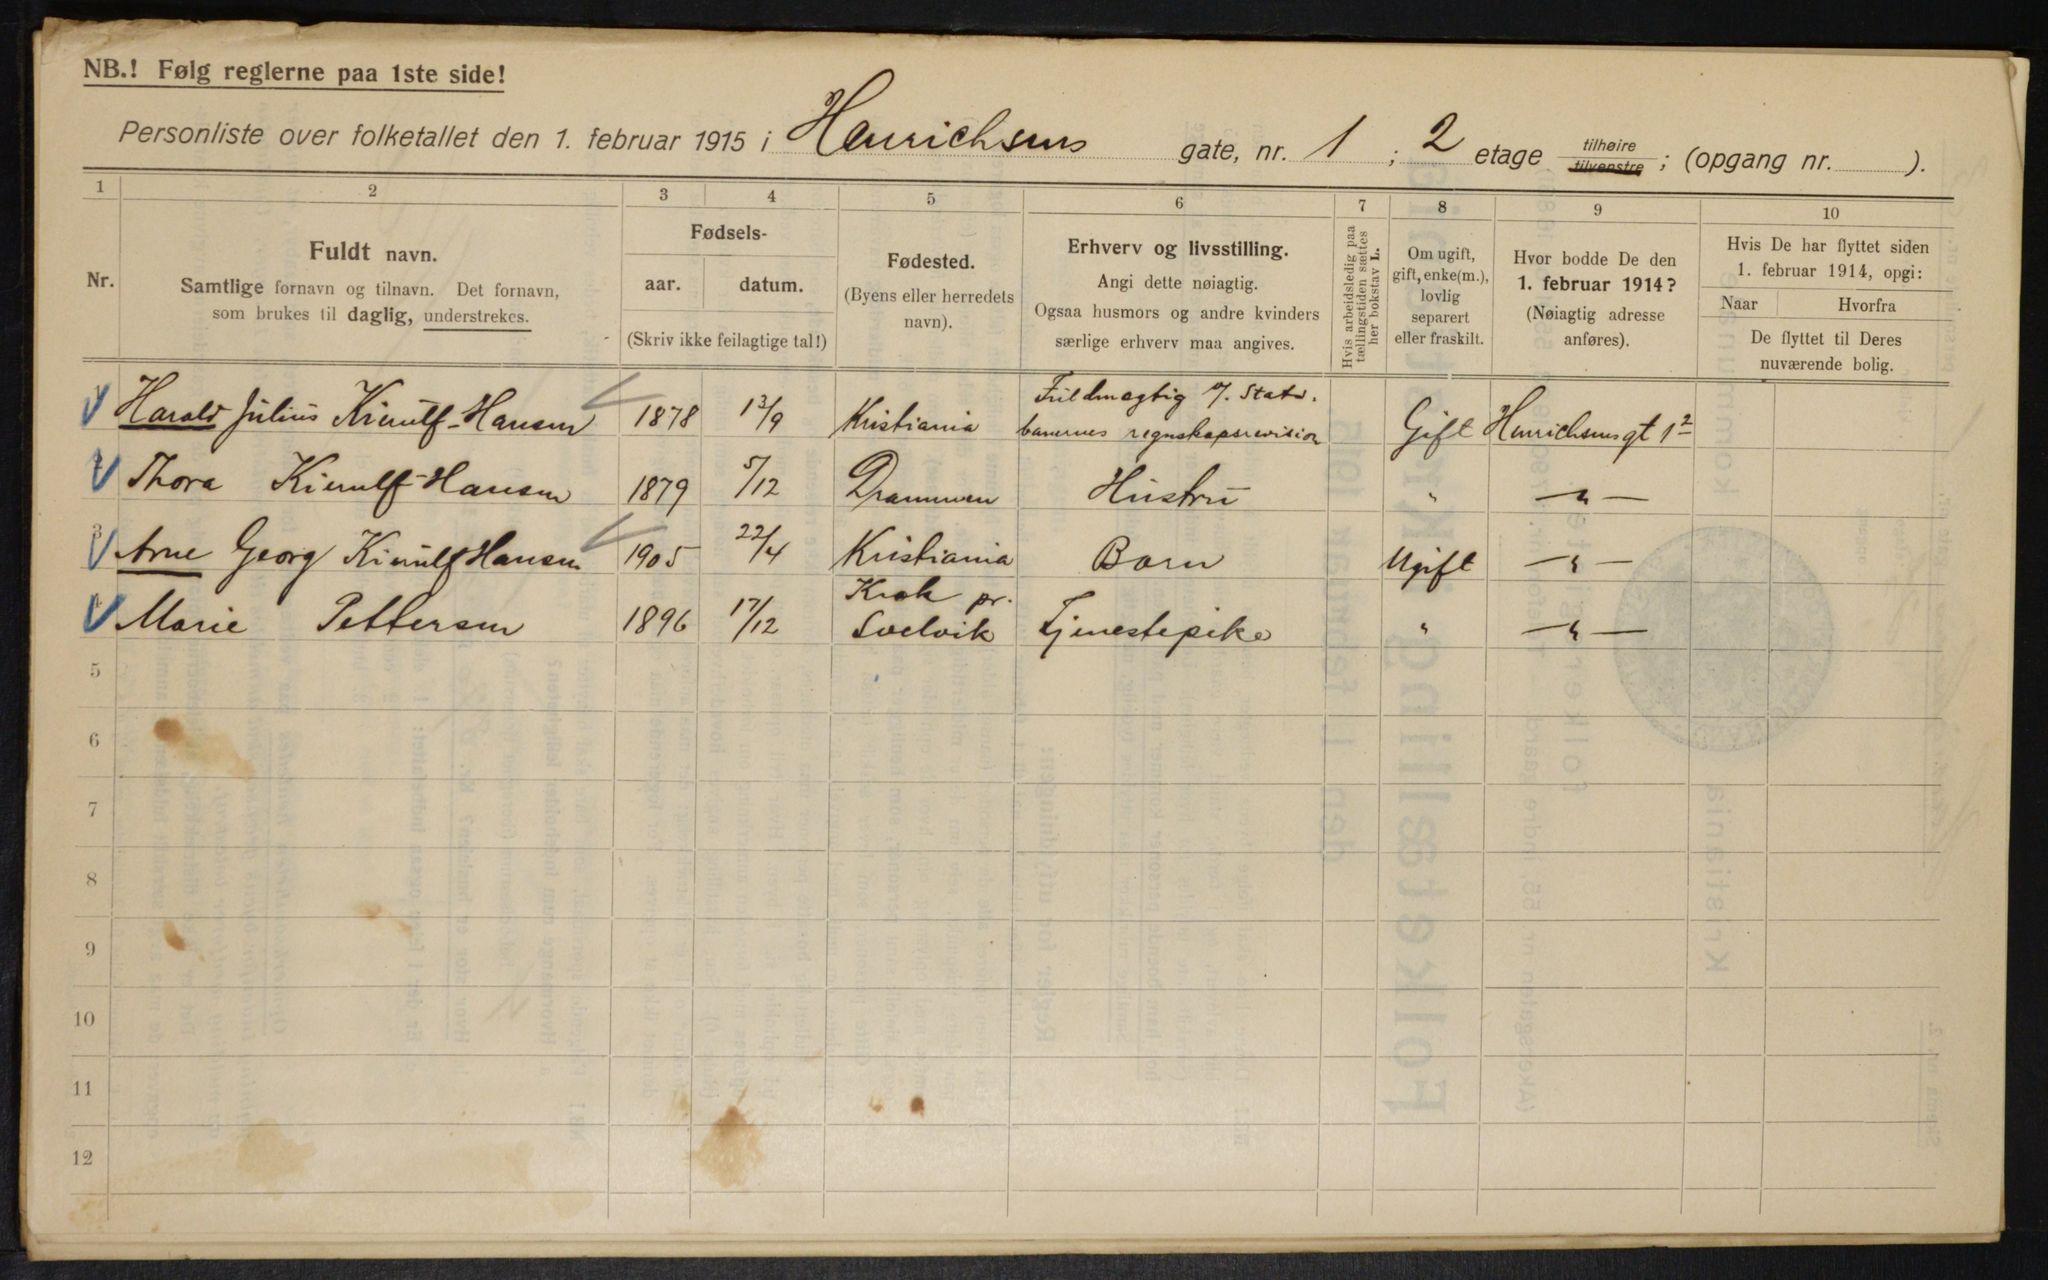 NB.! Følg reglerne paa 1ste side!
Personliste over folketallet den 1. februar 1915 i Henrichsens gate, nr. 1 ; 2 etage tilhøire tilvenstre ; (opgang nr. ).
1 2 3 4 5 6 7 8 9 10
Nr.
Fuldt navn.
Samtlige fornavn og tilnavn. Det fornavn,
som brukes til daglig, understrekes.
Fødsels-
aar. datum.
(Skriv ikke feilagtige tal!)
Fødested.
(Byens eller herredets
navn).
Erhverv og livsstilling.
Angi dette nøiagtig.
Ogsaa husmors og andre kvinders
særlige erhverv maa angives.
Hvis arbeidsledig paa
tællingstiden sættes
her bokstav L.
Om ugift,
gift, enke(m.),
lovlig
separert
eller fraskilt.
Hvor bodde De den
1. februar 1914?
(Nøiagtig adresse
anføres).
Hvis De har flyttet siden
1. februar 1914, opgi:
Naar Hvorfra
De flyttet til Deres
nuværende bolig.
1 Harald Julius Kierulf-Hansen 1878 13/9 Kristiania Fuldmægtig v/. Stats-
banernes regnskapsrevision Gift Henrichsensgt 1 2
2 Thora Kierulf-Hansen 1879 5/12 Drammen Hustru " — " —
3 Arne Georg Kierulf Hansen 1905 22/4 Kristiania Barn Ugift — " —
4 Marie Pettersen 1896 17/12 Krok pr.
Svelvik Tjenestepike " — " —
5
6
7
8
9
10
11
12